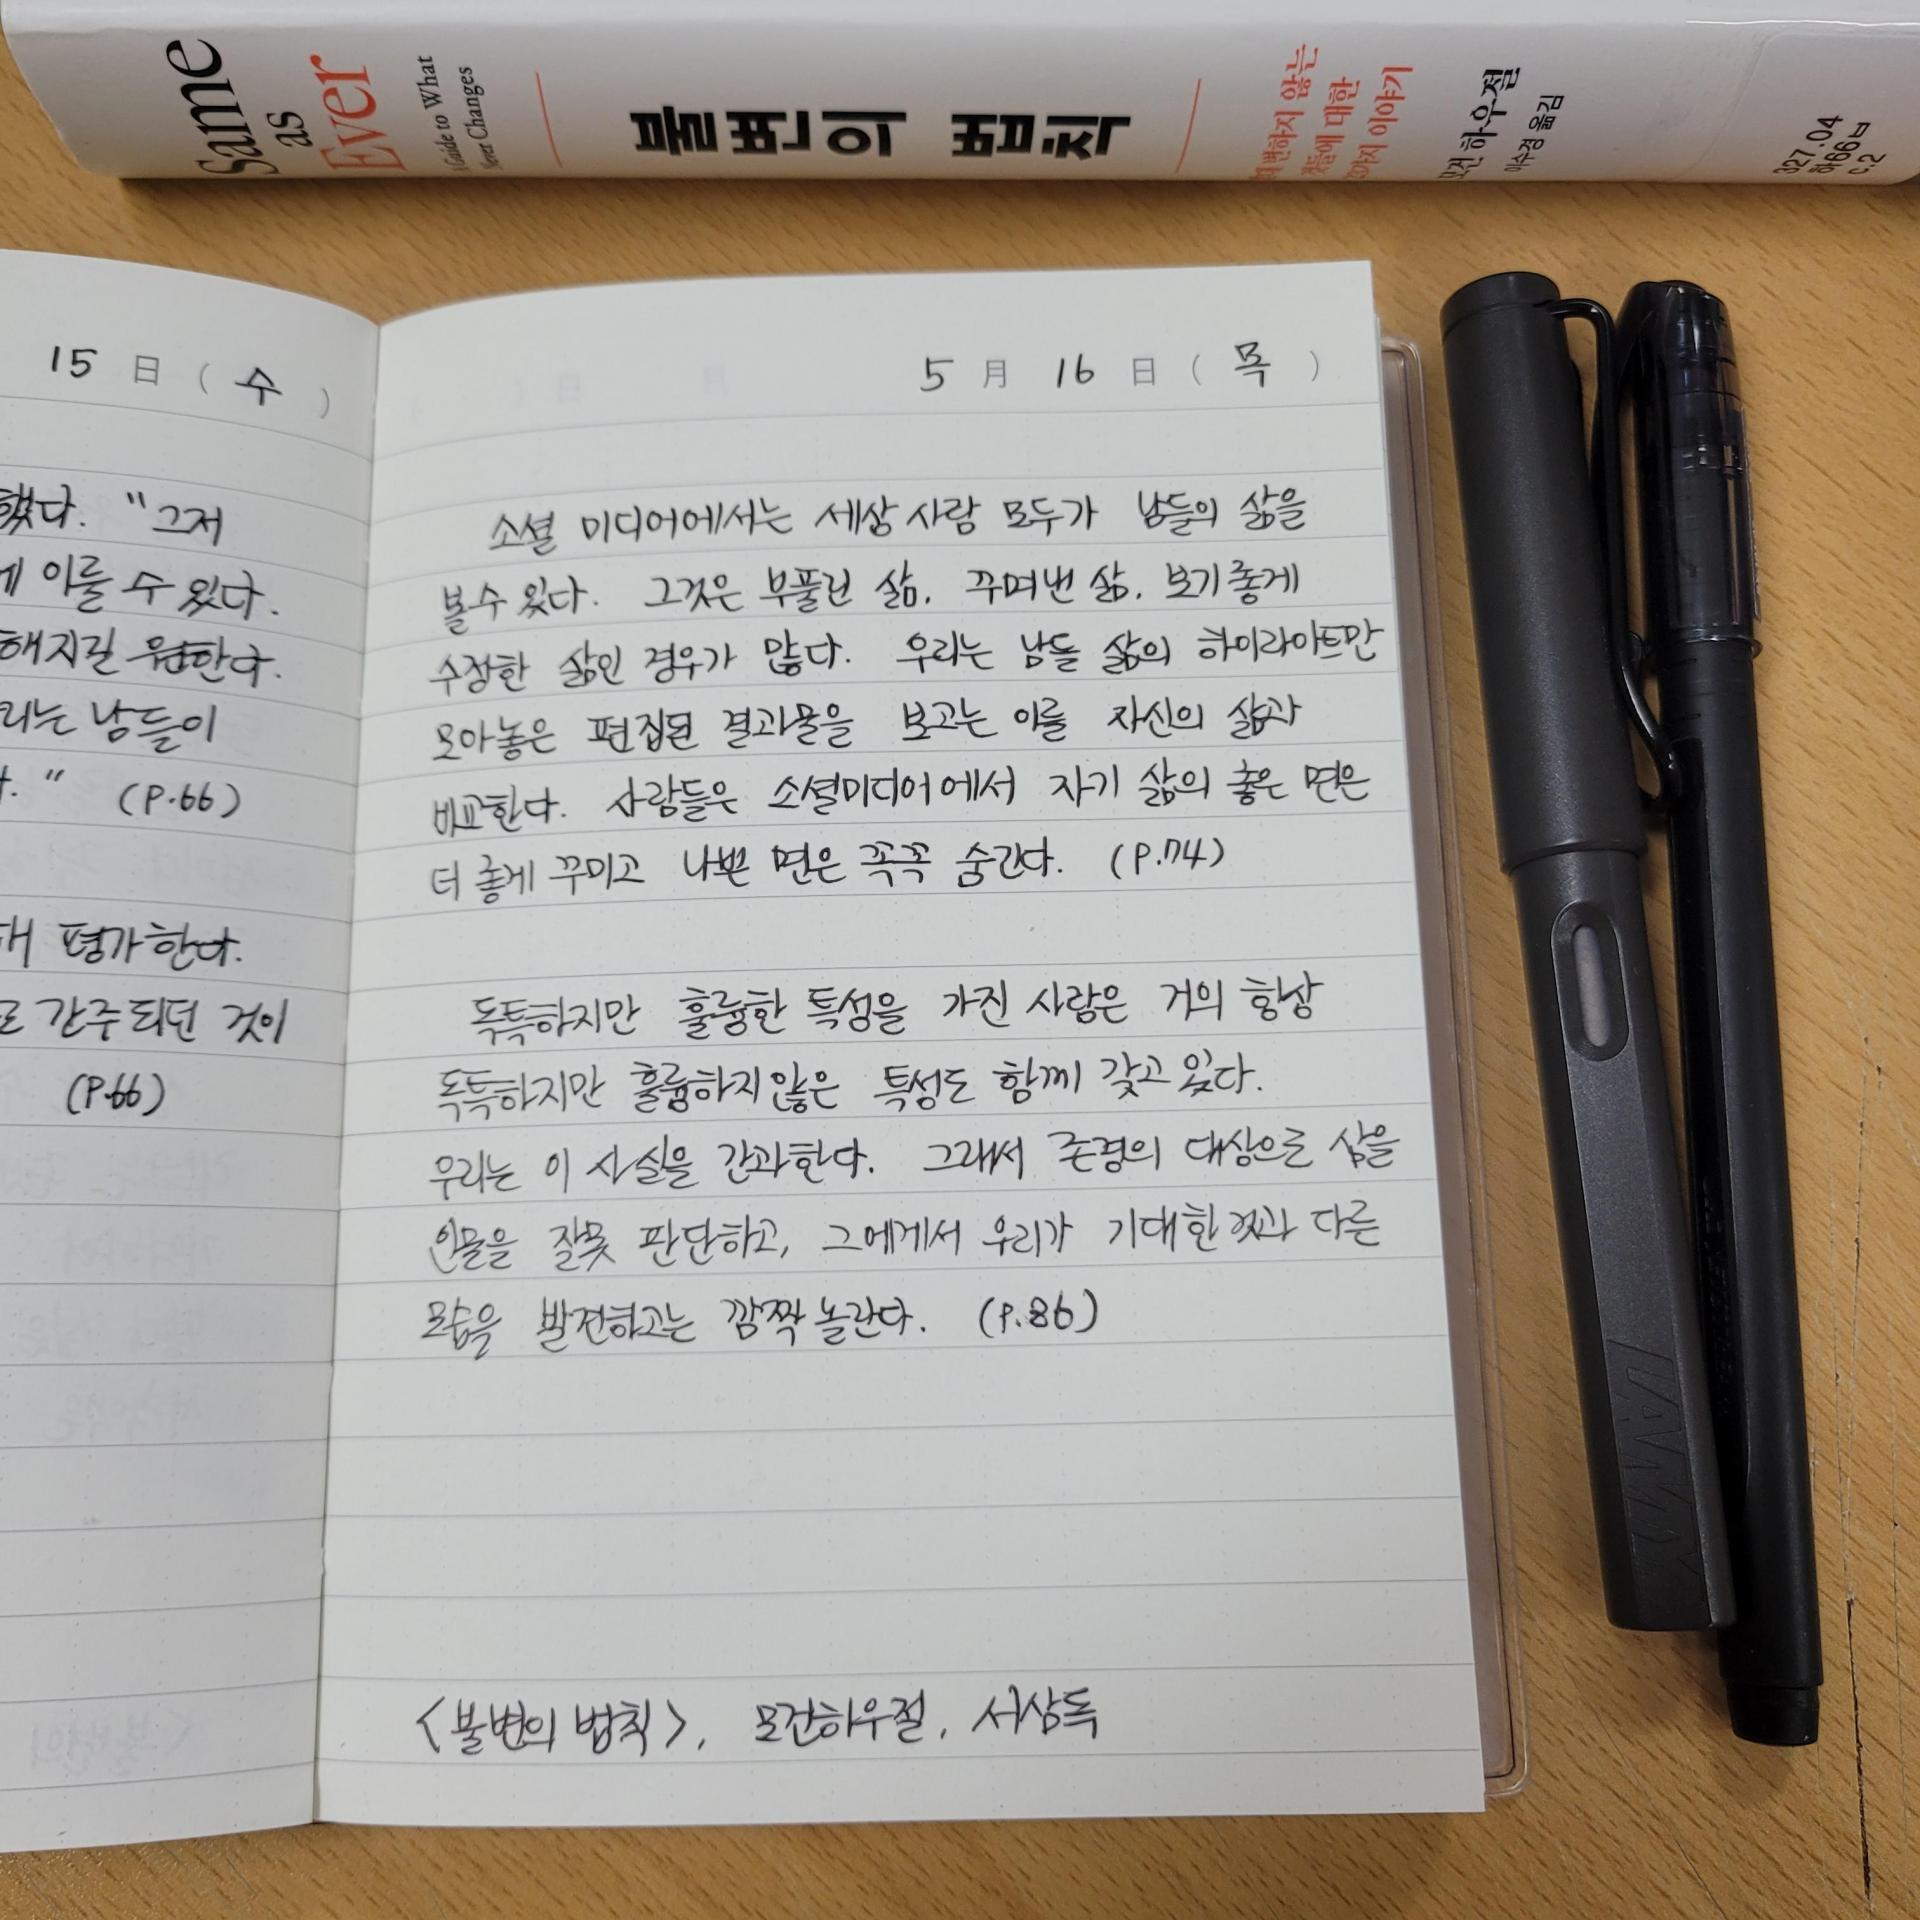 Same
as
Ever
A Guide to What
Never Changes
불변의 법칙
절대 변하지 않는
것들에 대한
23가지 이야기
모건 하우절
이수경 옮김
327.04
하66ㅂ
c.2
15 日 ( 수 )
했다. "그저
에 이를 수 있다.
해지길 원한다.
리는 남들이
다." (P.66)
평가한다.
로 간주되던 것이
(P.66)
5 月 16 日 ( 목 )
소셜 미디어에서는 세상 사람 모두가 남들의 삶을
볼 수 있다. 그것은 부풀린 삶, 꾸며낸 삶, 보기좋게
수정한 삶인 경우가 많다. 우리는 남들 삶의 하이라이트만
모아놓은 편집된 결과물을 보고는 이를 자신의 삶과
비교한다. 사람들은 소셜미디어에서 자기 삶의 좋은 면은
더 좋게 꾸미고 나쁜 면은 꼭꼭 숨긴다. (P.74)
독특하지만 훌륭한 특성을 가진 사람은 거의 항상
독특하지만 훌륭하지 않은 특성도 함께 갖고 있다.
우리는 이 사실을 간과한다. 그래서 존경의 대상으로 삼을
인물을 잘못 판단하고, 그에게서 우리가 기대한 것과 다른
모습을 발견하고는 깜짝 놀란다. (P.86)
<불변의 법칙>, 모건하우절, 서삼독
LAMY